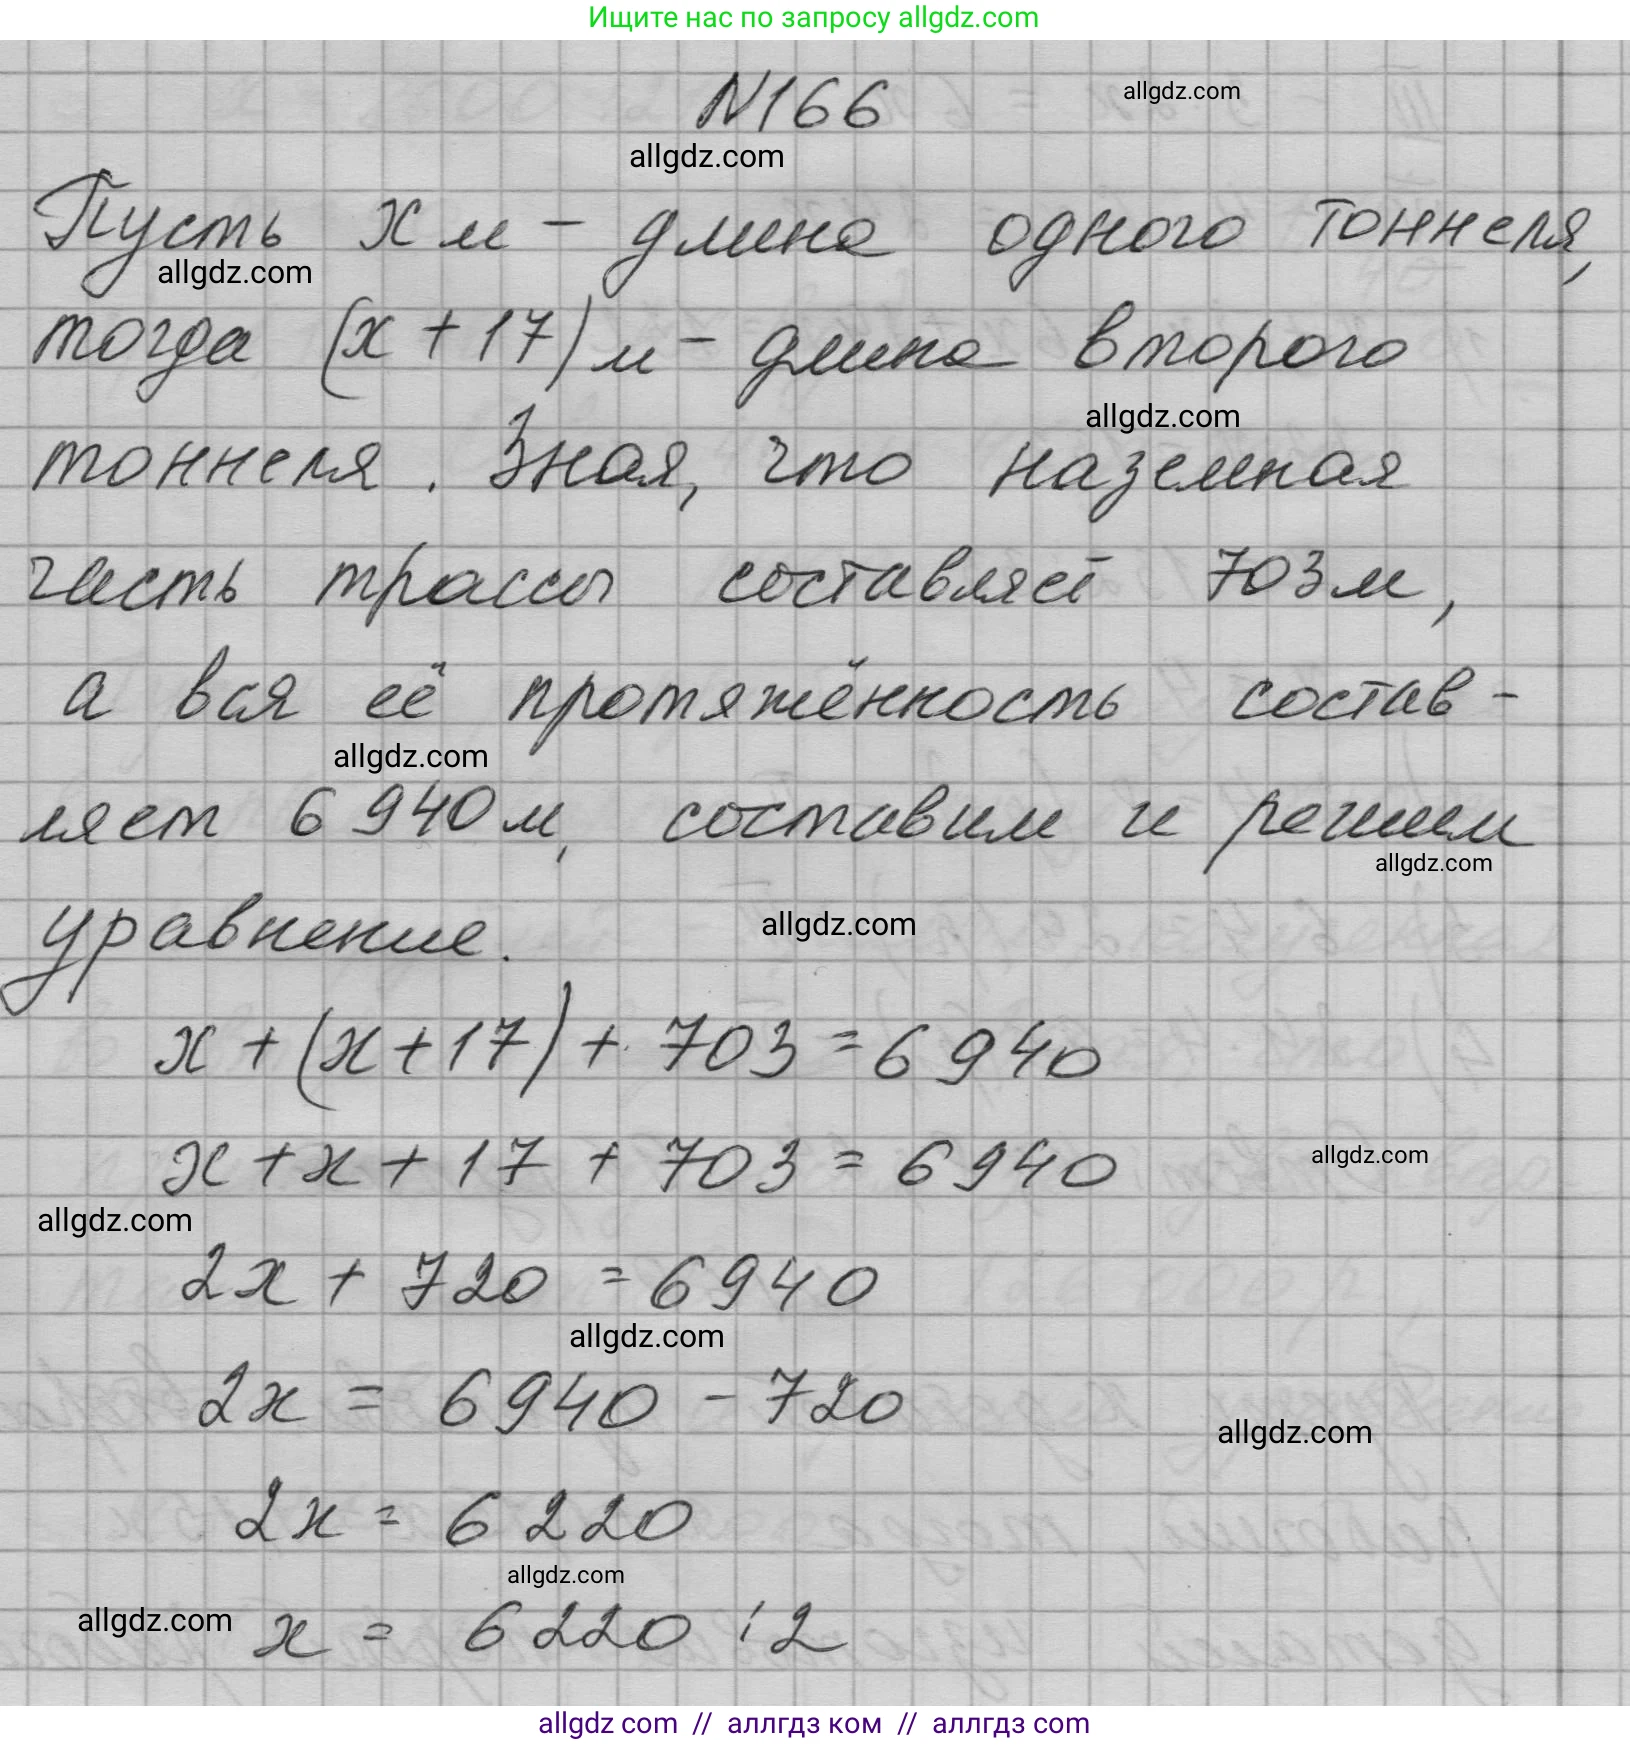 Ищите нас по запросу allgdz.com
N166
allgdz.com
allgdz.com
Пусть x м - длина одного тоннеля,
allgdz.com
тогда (x + 17) м - длина второго
allgdz.com
тоннеля. Зная, что наземная
часть трассы составляет 703 м,
а вся её протяжённость состав-
allgdz.com
ляет 6 940 м, составим и решим
allgdz.com
уравнение.
allgdz.com
x + (x + 17) + 703 = 6 940
x + x + 17 + 703 = 6 940
allgdz.com
allgdz.com
2x + 720 = 6 940
allgdz.com
2x = 6 940 - 720
allgdz.com
2x = 6 220
allgdz.com
allgdz.com
x = 6 220 : 2
allgdz com // аллгдз ком // аллгдз com